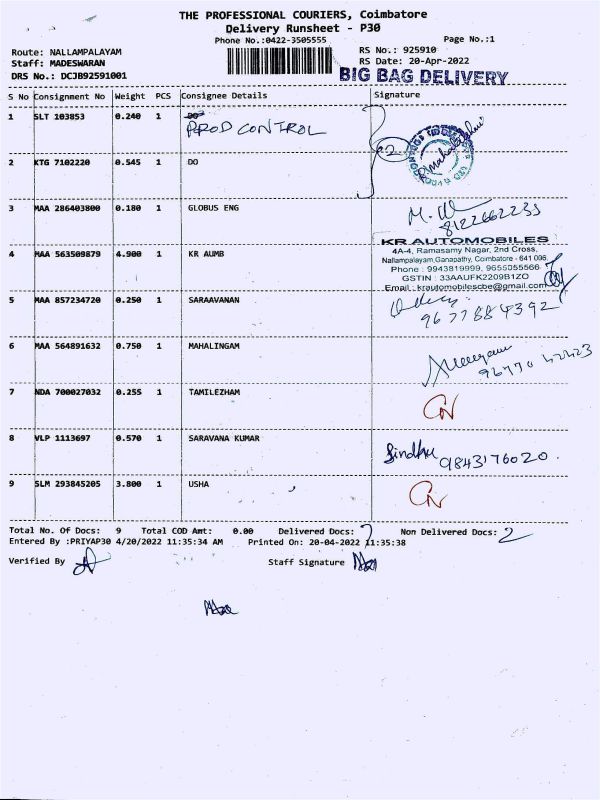 THE PROFESSIONAL COURIERS, Coimbatore
Delivery Runsheet - P30
Phone No.:0422-3505555 Page No.:1
Route: NALLAMPALAYAM RS No.: 925910
Staff: MADESWARAN RS Date: 20-Apr-2022
DRS No.: DCJB92591001 BIG BAG DELIVERY
S No Consignment No Weight PCS Consignee Details Signature
1 SLT 103853 0.240 1 DO
PROD CONTROL
2 KTG 7102220 0.545 1 DO
3 MAA 286403800 0.180 1 GLOBUS ENG
8122662235
KR AUTOMOBILES
4A-4, Ramasamy Nagar, 2nd Cross,
4 MAA 563509879 4.900 1 KR AUMB Nallampalayam,Ganapathy, Coimbatore - 641 006.
Phone : 9943819999, 9655055566
GSTIN : 33AAUFK2209B1ZO
Email : krautomobilescbe@gmail.com
5 MAA 857234720 0.250 1 SARAAVANAN
9677884392
6 MAA 564891632 0.750 1 MAHALINGAM
7 NDA 700027032 0.255 1 TAMILEZHAM
CN
8 VLP 1113697 0.570 1 SARAVANA KUMAR
Sindhu 9843176020.
9 SLM 293845205 3.800 1 USHA
CN
Total No. Of Docs: 9 Total COD Amt: 0.00 Delivered Docs: 7 Non Delivered Docs: 2
Entered By :PRIYAP30 4/20/2022 11:35:34 AM Printed On: 20-04-2022 11:35:38
Verified By Staff Signature